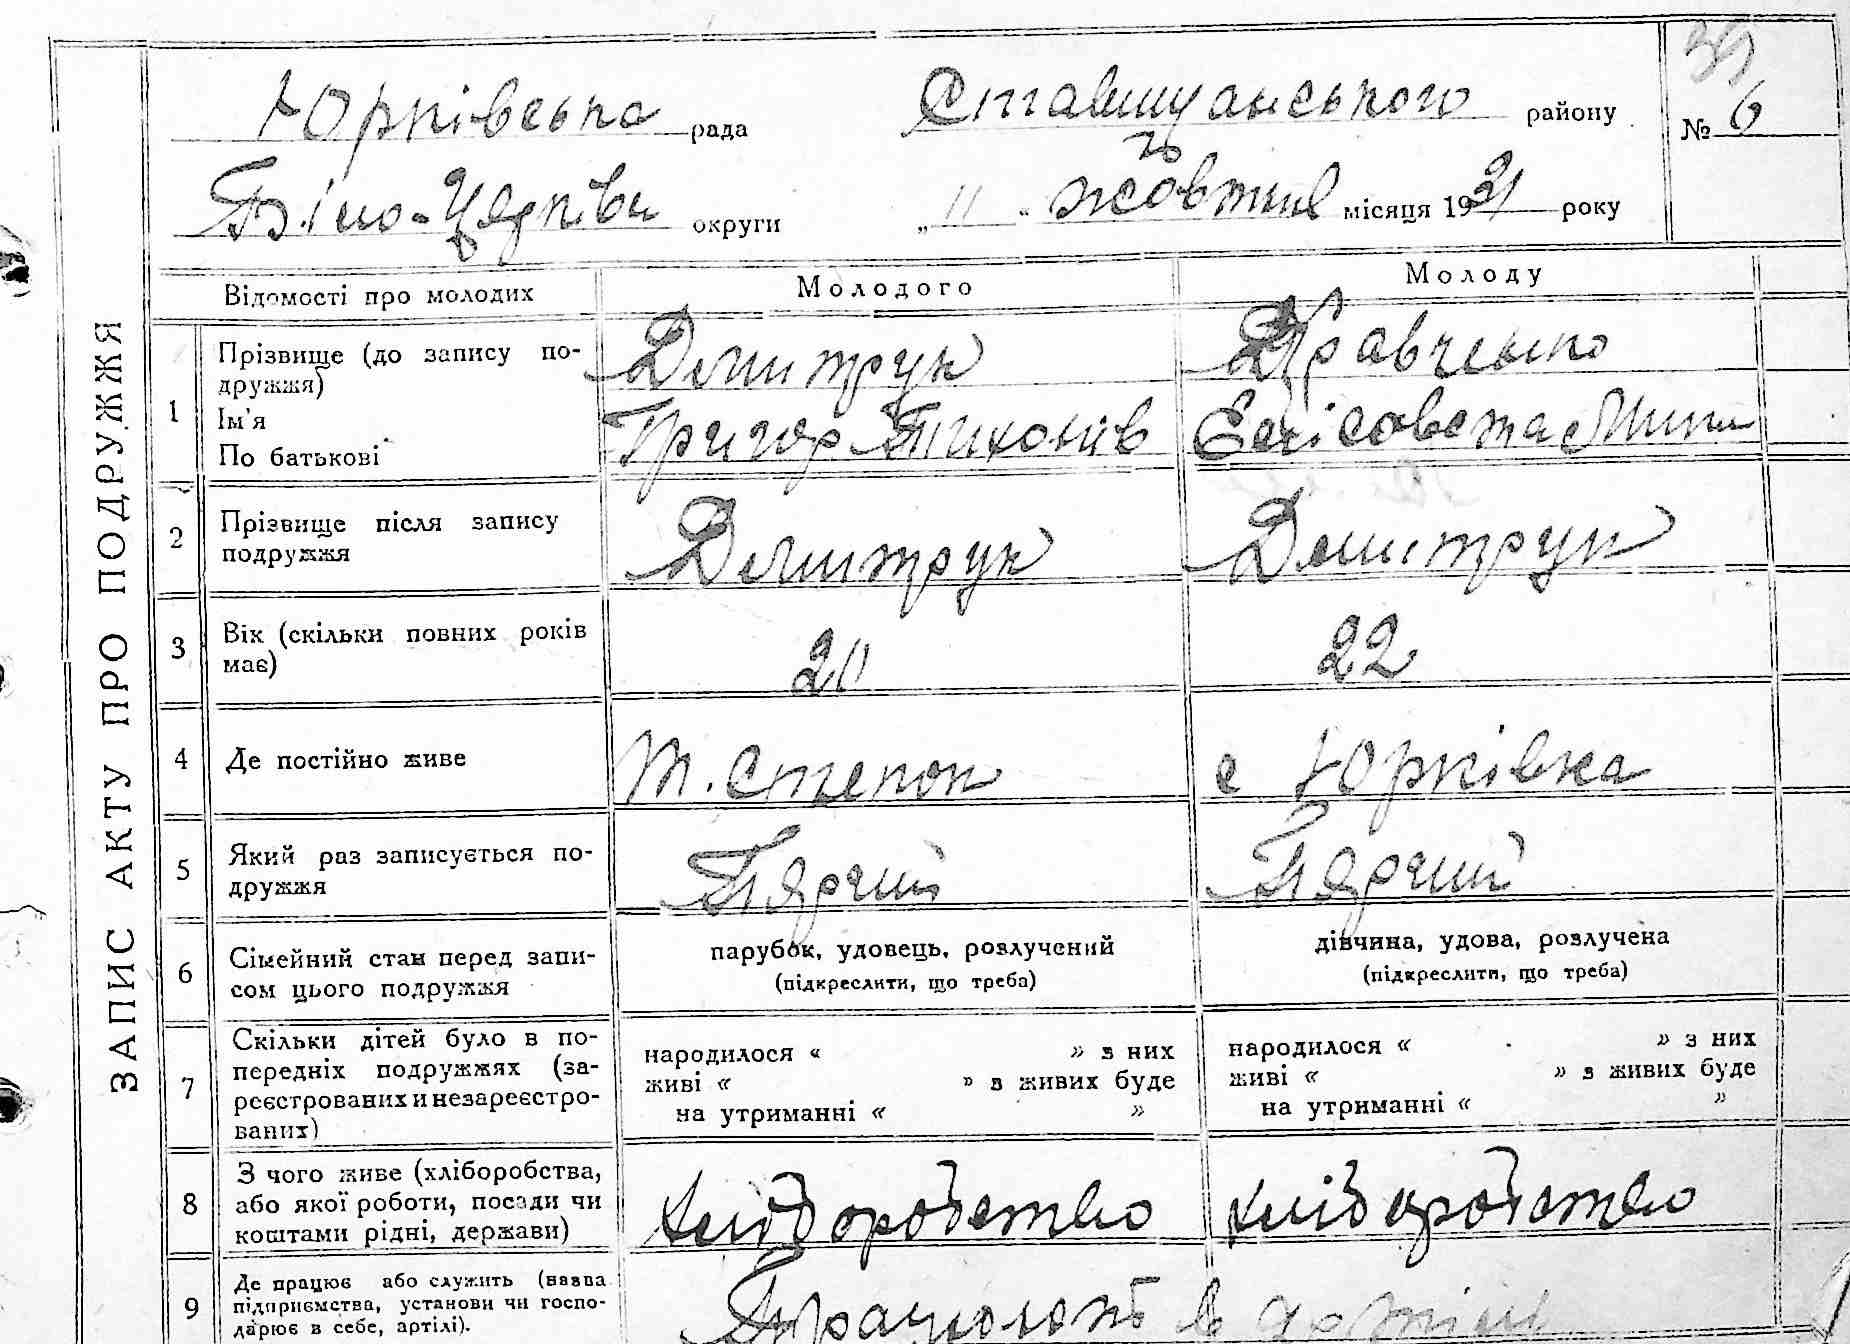 39
Юрківська рада Ставищанського району № 6
Біло-Церківс округи „ 11 " жовтня місяця 1931 року
ЗАПИС АКТУ ПРО ПОДРУЖЖЯ
Відомості про молодих Молодого Молоду
1 Прізвище (до запису по-
дружжя) Дмитрук Кравченко
Ім'я
По батькові Григор Тихонів Єлісовета
2 Прізвище після запису
подружжя Дмитрук Дмитрук
3 Вік (скільки повних років
має) 20 22
4 Де постійно живе с Юрківка
5 Який раз записується по-
дружжя Перший Перший
6 Сімейний стан перед запи-
сом цього подружжя
парубок, удовець, розлучений
(підкреслити, що треба)
дівчина, удова, розлучена
(підкреслити, що треба)
7 Скільки дітей було в по-
передніх подружжях (за-
реєстрованих и незареєстро-
ваних)
народилося « » з них
живі « » з живих буде
на утриманні « »
народилося « » з них
живі « » з живих буде
на утриманні « »
8 З чого живе (хліборобства,
або якої роботи, посади чи
коштами рідні, держави)
хліборобство хліборобство
9 Де працює або служить (назва
підприємства, установи чи госпо-
дарює в себе, артілі).
Працюють в артіли